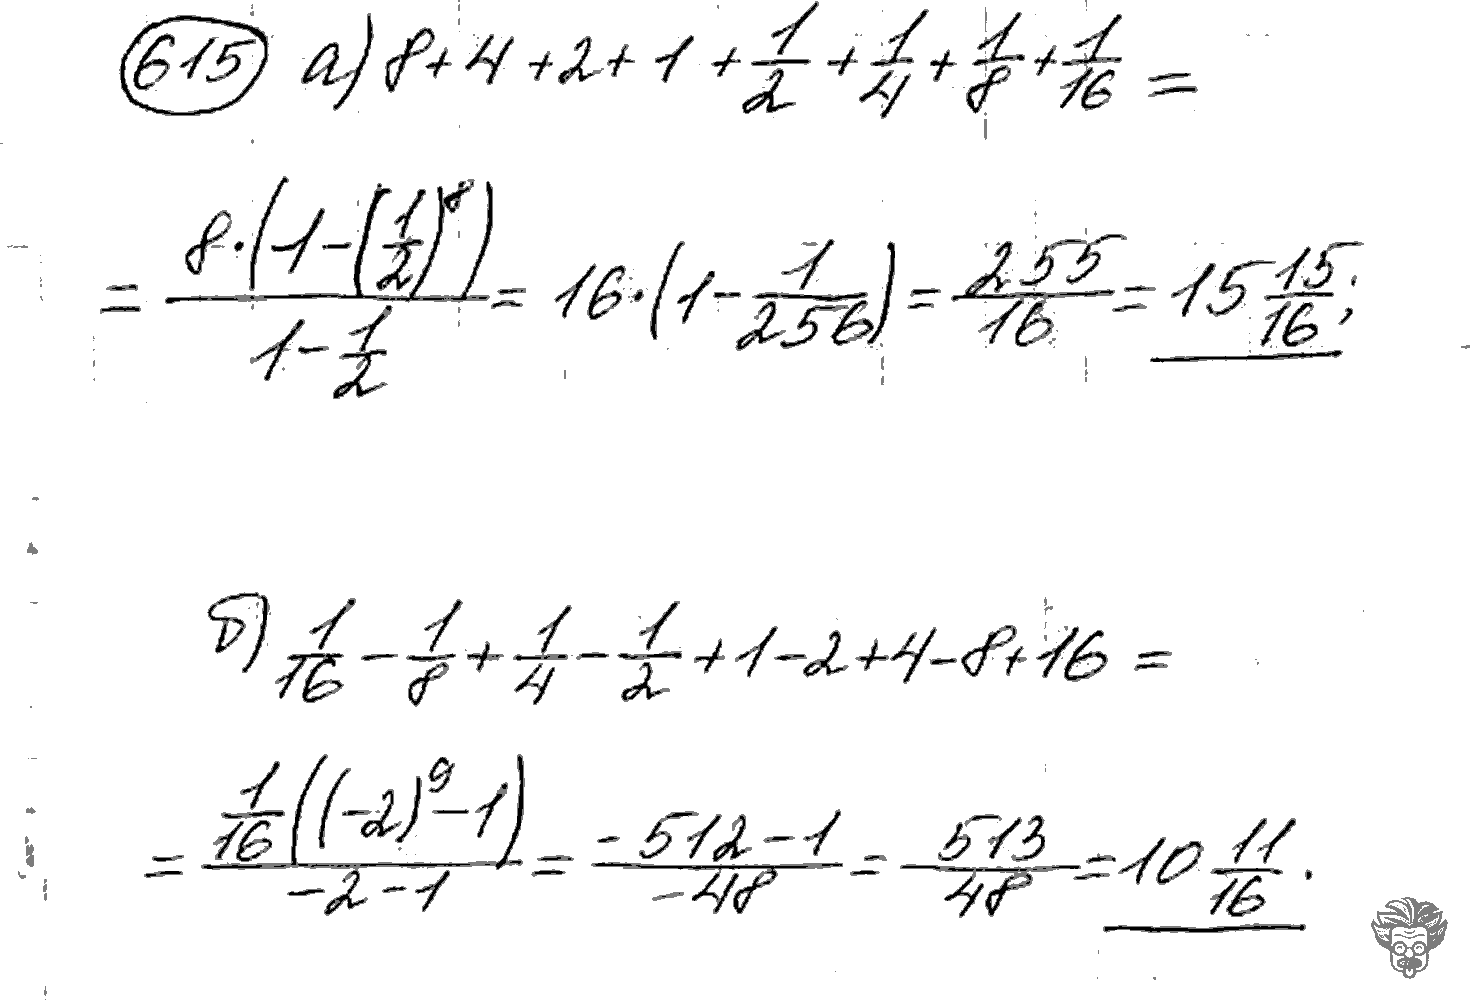 615 а) 8+4+2+1+1/2+1/4+1/8+1/16=
=8·(1-(1/2)^8)/(1-1/2)=16·(1-1/256)=255/16=15 15/16;
б) 1/16-1/8+1/4-1/2+1-2+4-8+16=
=1/16((-2)^9-1)/(-2-1)=(-512-1)/(-48)=513/48=10 11/16.